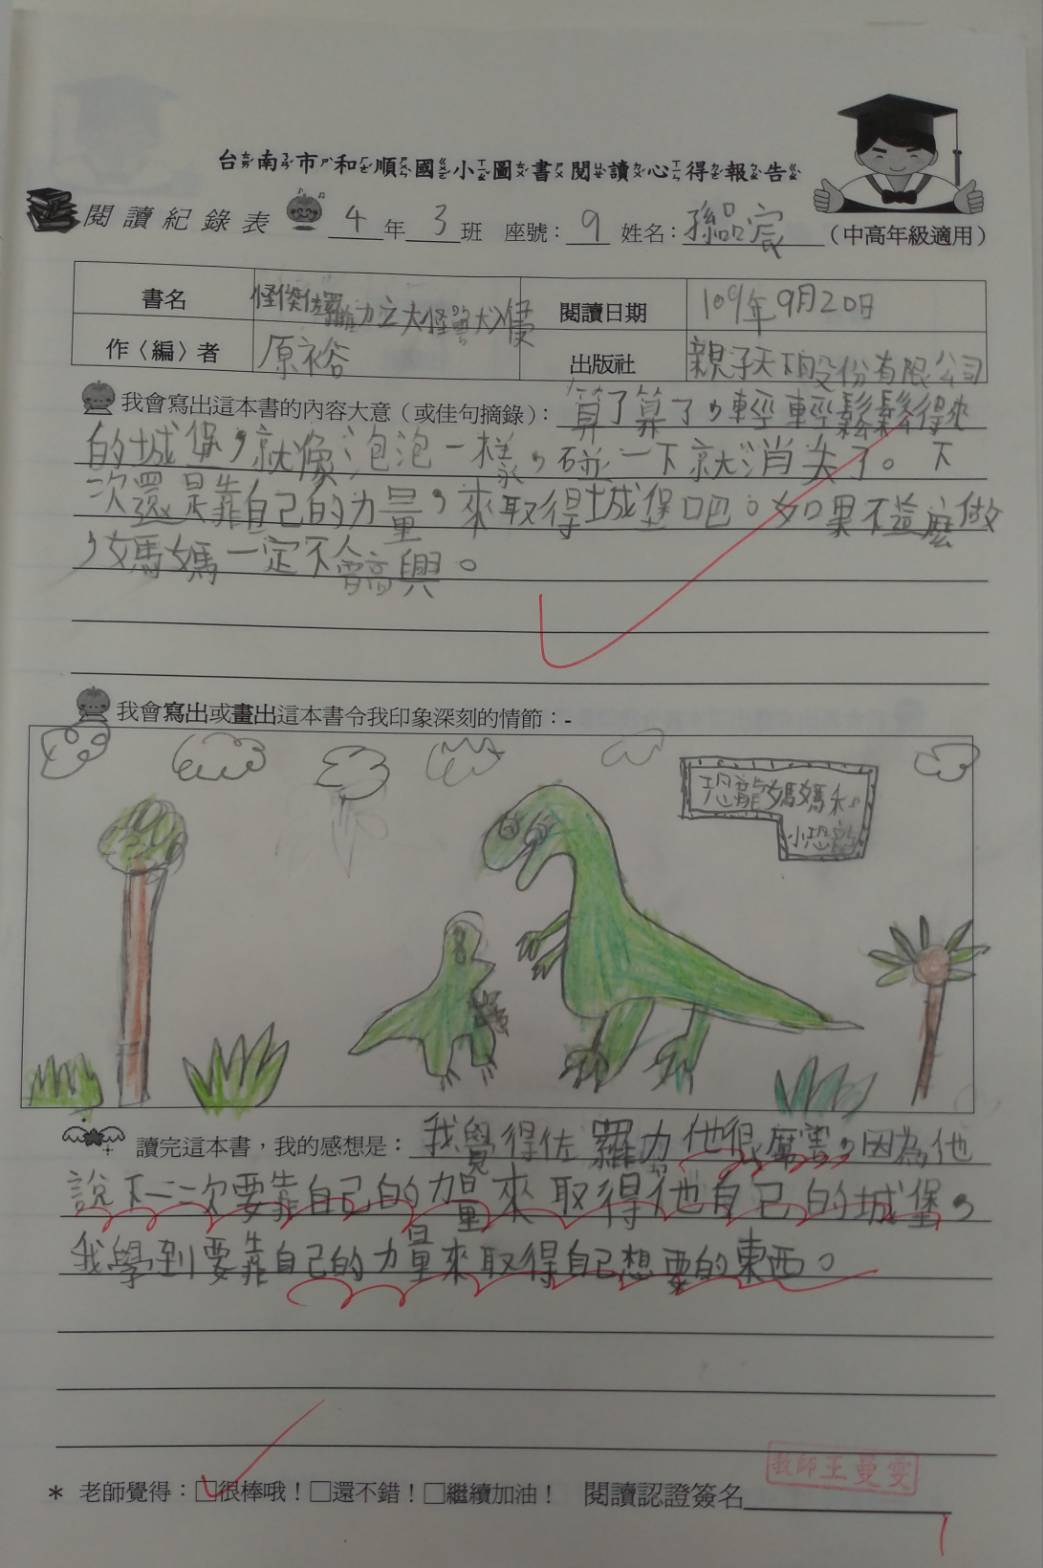 台南市和順國小圖書閱讀心得報告
閱讀紀錄表 4年3班 座號：9 姓名：孫品宸（中高年級適用）
書名 怪傑佐羅力之大怪獸入侵 閱讀日期 109年9月20日
作〈編〉者 原裕 出版社 親子天下股份有限公司
我會寫出這本書的內容大意（或佳句摘錄）：算了算了，輕輕鬆鬆得來
的城堡，就像泡泡一樣，碰一下就消失了。下
次還是靠自己的力量，來取得城堡吧。如果不這麼做
，媽媽一定不會高興。
我會寫出或畫出這本書令我印象深刻的情節：
恐龍媽媽和
小恐龍
讀完這本書，我的感想是：我覺得佐羅力他很厲害，因為他
說下一次要靠自己的力量來取得他自己的城堡，
我學到要靠自己的力量來取得自己想要的東西。
* 老師覺得：□很棒哦！□還不錯！□繼續加油！ 閱讀認證簽名
教師王曼雯